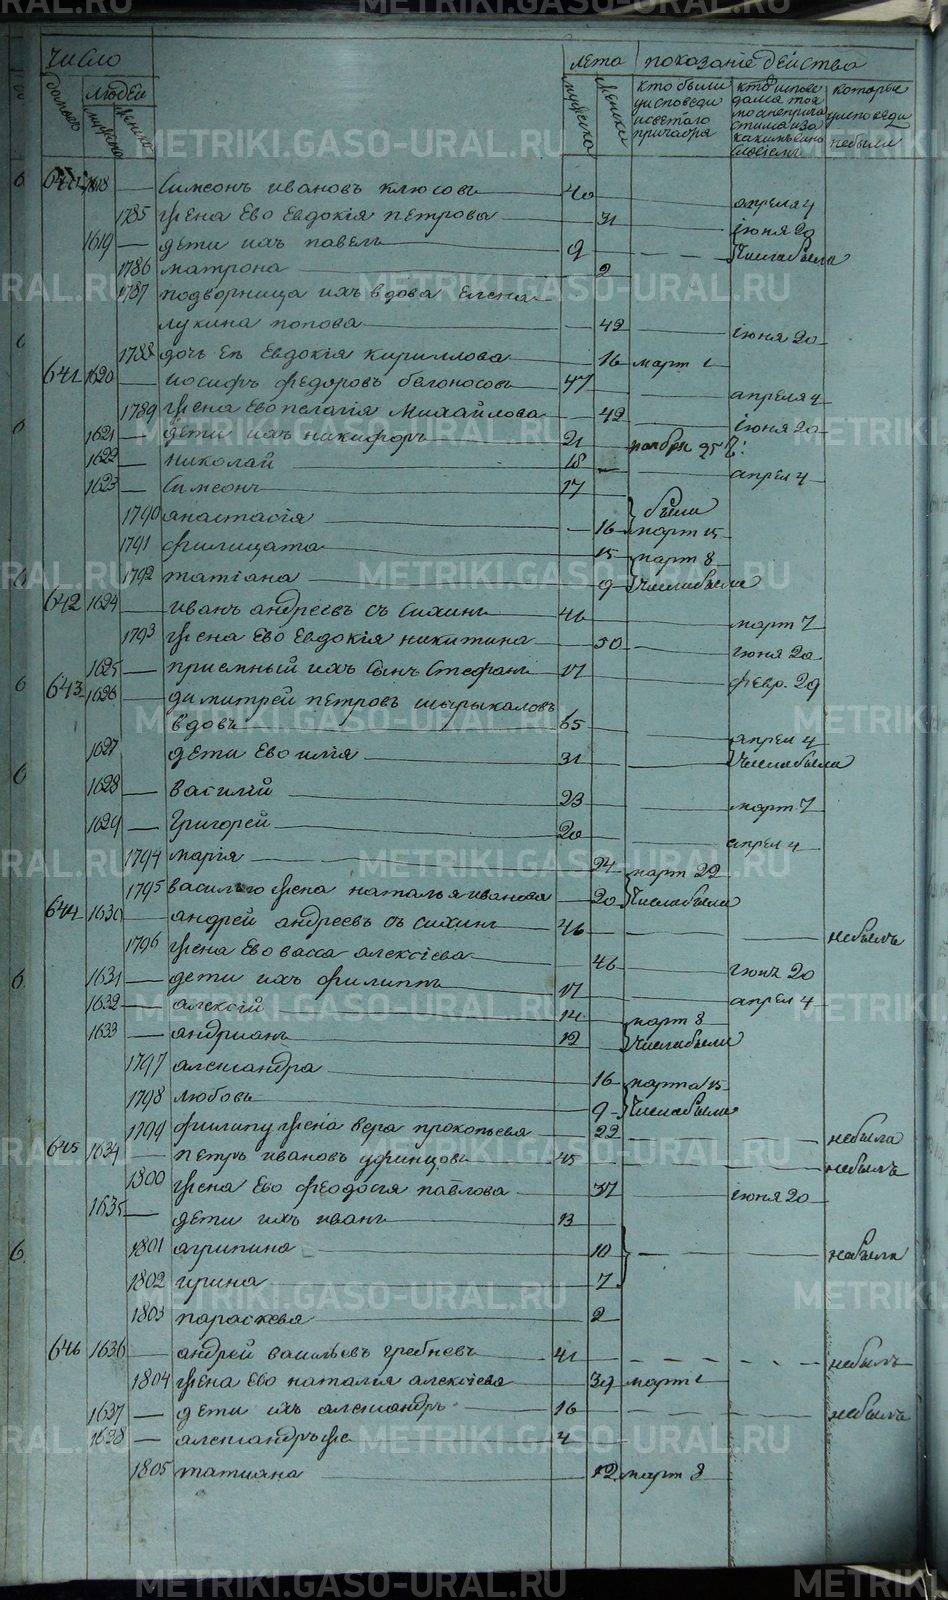 число лета показаніе действа
домовъ людей мужска женска мужска женски
кто были у исповеди и светаго причастія
которые у исповеди не были
1618 — Симеонъ ивановъ клюсовъ 40 апреля 4
1785 жена Ево Евдокія петрова 31 іюня 20
1619 — дети ихъ павелъ 9
1786 матрона 2
1787 подворница ихъ вдова Елена
лукина попова 42 іюня 20
1788 дочь Ея Евдокія кириллова 16 март 1
641 1620 — иосифъ федоровъ белоносовъ 47 апреля 4
1789 жена Ево пелагія Михайлова 42 іюня 20
1621 — дети ихъ никифоръ 21 ноября 25
1622 — николай 18 апрел 4
1623 — Симеонъ 17
1790 анастасія 16 были март 15
1791 филицата 15 март 8
1792 татіана 9
642 1624 — иванъ андреевъ 46 март 7
1793 жена Ево Евдокія никитина 50 іюня 20
1625 — приемный ихъ Сынъ Стефанъ 17 февр. 29
643 1626 — димитрей петровъ шырыкаловъ
вдовъ 65 апрел 4
1627 дети Ево илія 31
1628 — василій 23 март 7
1629 — Григорей 20 апрел 4
1794 марія 24 март 22
1795 василью жена наталья иванова 20
644 1630 андрей андреевъ 46 небылъ
1796 жена Ево васса алексіева 46 іюня 20
1631 — дети ихъ филиппъ 17 апрел 4
1632 — алексій 14 март 8
1633 — андрианъ 12
1797 александра 16 марта 15
1798 любовь 9
1799 филипу жена вера прокопьева 22 небыла
645 1634 — петръ ивановъ уфинцовъ 45 небылъ
1800 жена Ево феодосія павлова 37 іюня 20
1635 — дети ихъ иванъ 13
1801 агрипина 10 небыли
1802 ирина 7
1803 параскева 2
646 1636 — андрей васильевъ гребневъ 41 небылъ
1804 жена Ево наталія алексіева 39 март 1
1637 — дети ихъ александръ 16 небылъ
1638 — александръ же 4
1805 татиана 12 март 8
METRIKI.GASO-URAL.RU